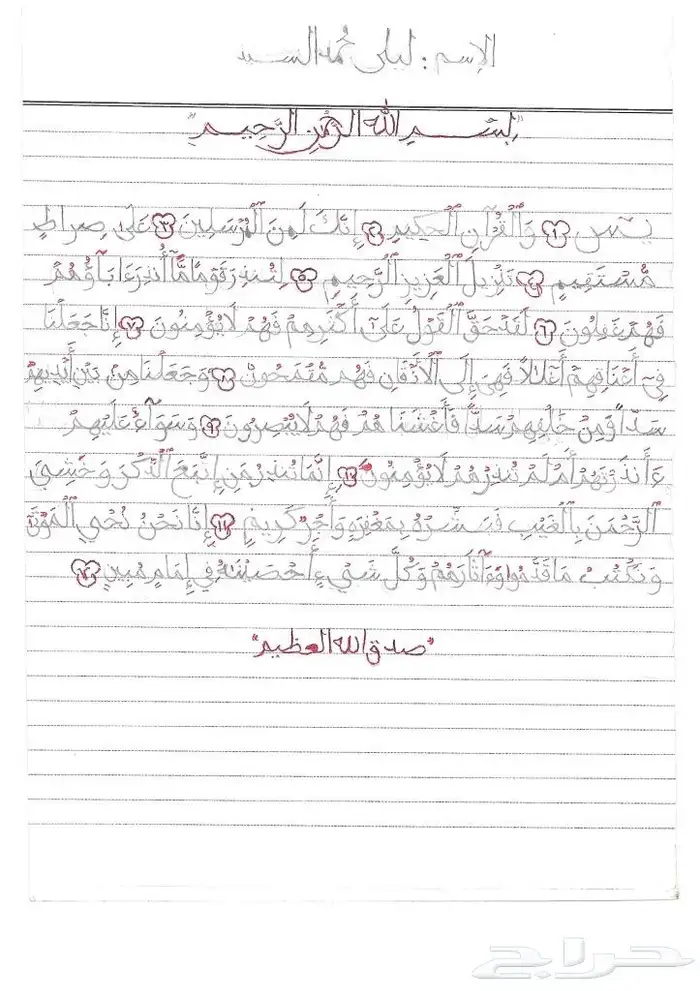 الإسم : ليلى محمد السيد
"بِسْمِ اللهِ الرَّحْمٰنِ الرَّحِيمِ"
يسٓ ١ وَٱلْقُرْآنِ ٱلْحَكِيمِ ٢ إِنَّكَ لَمِنَ ٱلْمُرْسَلِينَ ٣ عَلَىٰ صِرَاطٍ
مُّسْتَقِيمٍ ٤ تَنْزِيلَ ٱلْعَزِيزِ ٱلرَّحِيمِ ٥ لِتُنذِرَ قَوْمًا مَّآ أُنذِرَ ءَابَآؤُهُمْ
فَهُمْ غَٰفِلُونَ ٦ لَقَدْ حَقَّ ٱلْقَوْلُ عَلَىٰٓ أَكْثَرِهِمْ فَهُمْ لَا يُؤْمِنُونَ ٧ إِنَّا جَعَلْنَا
فِىٓ أَعْنَاقِهِمْ أَغْلَالاً فَهِىَ إِلَى ٱلْأَذْقَانِ فَهُم مُّقْمَحُونَ ٨ وَجَعَلْنَا مِنْ بَيْنِ أَيْدِيهِمْ
سَدّاً وَمِنْ خَلْفِهِمْ سَدّاً فَأَغْشَيْنَاهُمْ فَهُمْ لَا يُبْصِرُونَ ٩ وَسَوَآءٌ عَلَيْهِمْ
ءَأَنذَرْتَهُمْ أَمْ لَمْ تُنذِرْهُمْ لَا يُؤْمِنُونَ ١٠ إِنَّمَا تُنذِرُ مَنِ إتَّبَعَ ٱلذِّكْرَ وَخَشِيَ
ٱلرَّحْمَٰنَ بِٱلْغَيْبِ فَبَشِّرْهُ بِمَغْفِرَةٍ وَأَجْرٍ كَرِيمٍ ١١ إِنَّا نَحْنُ نُحْيِ ٱلْمَوْتَىٰ
وَنَكْتُبُ مَا قَدَّمُوا وَءَاثَارَهُمْ وَكُلَّ شَيْءٍ أَحْصَيْنَٰهُ فِي إِمَامٍ مُبِينٍ ١٢
"صدق الله العظيم"
حراج